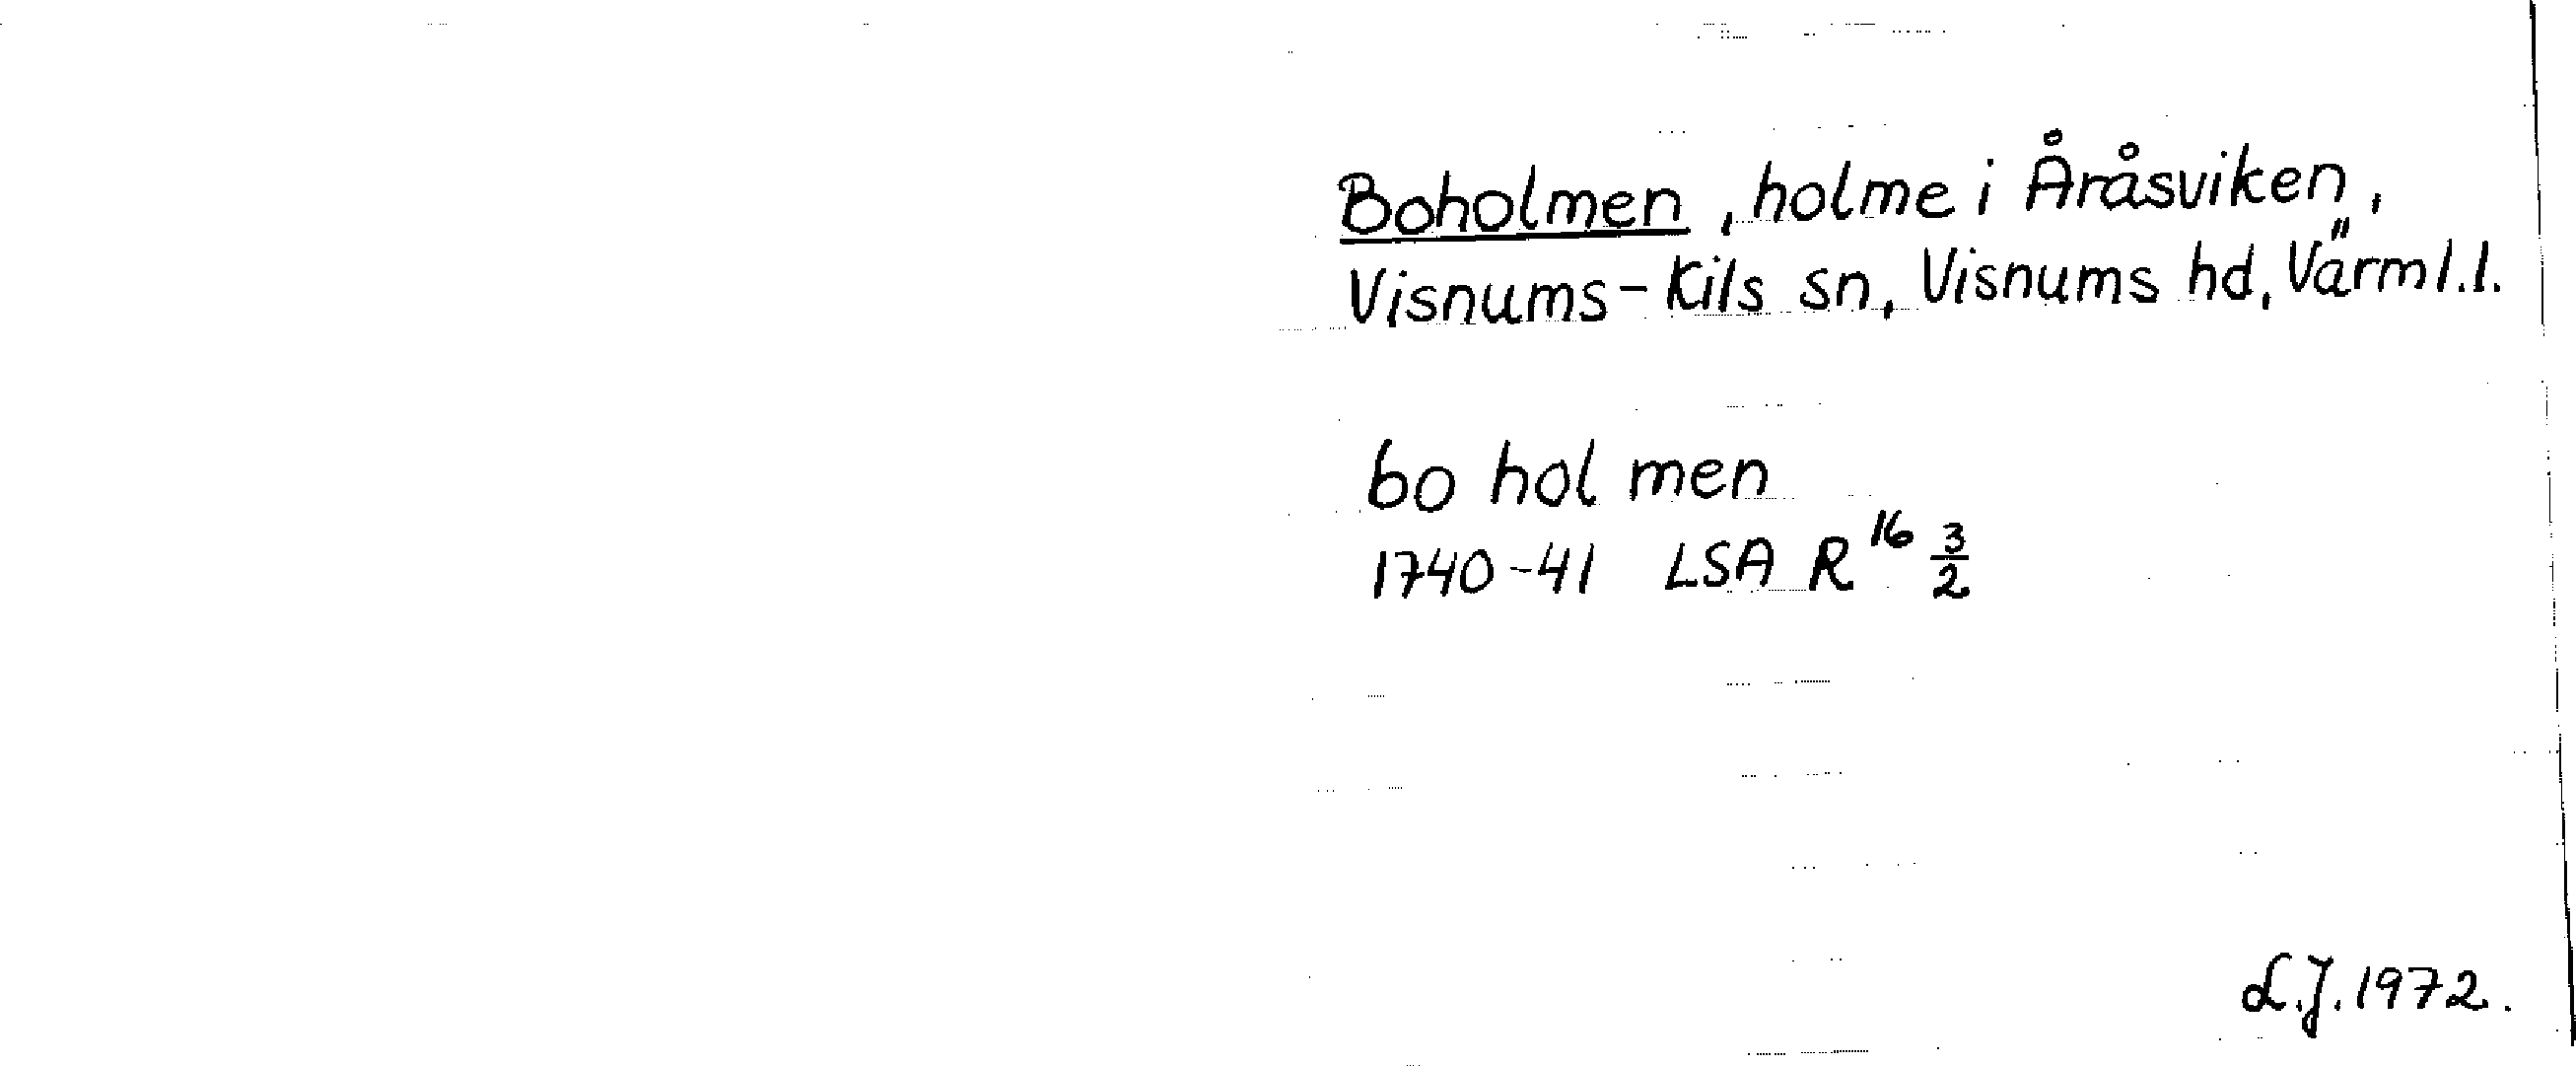 Boholmen, holme i Åråsviken,
Visnums-Kils sn, Visnums hd, Värml.l.
bo hol men
1740-41 LSA R 16 3/2
L.J. 1972.